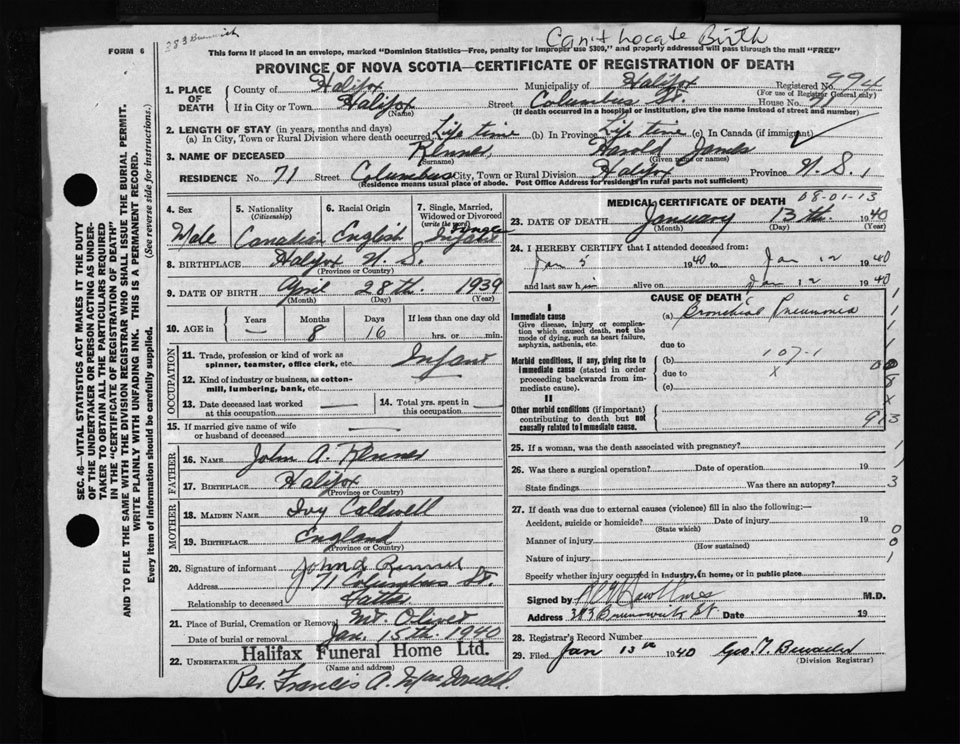 283 Brunswick
Can't Locate Birth
FORM 6
This form if placed in an envelope, marked "Dominion Statistics—Free, penalty for improper use $300," and properly addressed will pass through the mail "FREE"
PROVINCE OF NOVA SCOTIA—CERTIFICATE OF REGISTRATION OF DEATH
SEC. 46—VITAL STATISTICS ACT MAKES IT THE DUTY
OF THE UNDERTAKER OR PERSON ACTING AS UNDER-
TAKER TO OBTAIN ALL THE PARTICULARS REQUIRED
IN THE "CERTIFICATE OF REGISTRATION OF DEATH"
AND TO FILE THE SAME WITH THE DIVISION REGISTRAR WHO SHALL ISSUE THE BURIAL PERMIT.
WRITE PLAINLY WITH UNFADING INK. THIS IS A PERMANENT RECORD.
Every item of information should be carefully supplied. (See reverse side for instructions.)
1. PLACE OF DEATH
County of Halifax Municipality of Halifax Registered No. 994
(For use of Registrar General only)
If in City or Town Halifax Street Columbus St. House No. 71
(Name) (If death occurred in a hospital or institution, give the name instead of street and number)
2. LENGTH OF STAY (in years, months and days)
(a) In City, Town or Rural Division where death occurred Life time (b) In Province Life time (c) In Canada (if immigrant)
3. NAME OF DECEASED Renner, Harold James
(Surname) (Given name or names)
RESIDENCE No. 71 Street Columbus City, Town or Rural Division Halifax Province N. S.
(Residence means usual place of abode. Post Office Address for residents in rural parts not sufficient)
4. Sex 5. Nationality (Citizenship) 6. Racial Origin 7. Single, Married, Widowed or Divorced (write the word)
Male Canadian English Single Infant
8. BIRTHPLACE Halifax N. S.
(Province or Country)
9. DATE OF BIRTH April 28th. 1939
(Month) (Day) (Year)
10. AGE in Years Months Days If less than one day old
— 8 16 hrs. or min.
OCCUPATION
11. Trade, profession or kind of work as spinner, teamster, office clerk, etc. Infant
12. Kind of industry or business, as cotton-mill, lumbering, bank, etc.
13. Date deceased last worked at this occupation — 14. Total yrs. spent in this occupation —
15. If married give name of wife or husband of deceased —
FATHER
16. NAME John A. Renner
17. BIRTHPLACE Halifax
(Province or Country)
MOTHER
18. MAIDEN NAME Ivy Caldwell
19. BIRTHPLACE England
(Province or Country)
20. Signature of informant John A Renner
Address 71 Columbus St.
Relationship to deceased Father
21. Place of Burial, Cremation or Removal Mt. Olivet
Date of burial or removal Jan. 15th. 1940
22. UNDERTAKER Halifax Funeral Home Ltd.
(Name and address)
Per. Francis A. MacDonald.
MEDICAL CERTIFICATE OF DEATH
08-01-13
23. DATE OF DEATH January 13th. 1940
(Month) (Day) (Year)
24. I HEREBY CERTIFY that I attended deceased from:
Jan 5 1940 to Jan 12 1940
and last saw him alive on Jan 12 1940
CAUSE OF DEATH
I
Immediate cause (a) Bronchial Pneumonia
Give disease, injury or complication which caused death, not the mode of dying, such as heart failure, asphyxia, asthenia, etc.
due to
Morbid conditions, if any, giving rise to immediate cause (stated in order proceeding backwards from immediate cause).
(b) 107-1
due to X
(c)
II
Other morbid conditions (if important) contributing to death but not causally related to immediate cause.
25. If a woman, was the death associated with pregnancy?
26. Was there a surgical operation? Date of operation 19
State findings Was there an autopsy?
27. If death was due to external causes (violence) fill in also the following:—
Accident, suicide or homicide? Date of injury 19
(State which)
Manner of injury
(How sustained)
Nature of injury
Specify whether injury occurred in industry, in home, or in public place
Signed by M.D.
Address 283 Brunswick St Date 19
28. Registrar's Record Number
29. Filed Jan 15th 1940 Geo. T.
(Division Registrar)